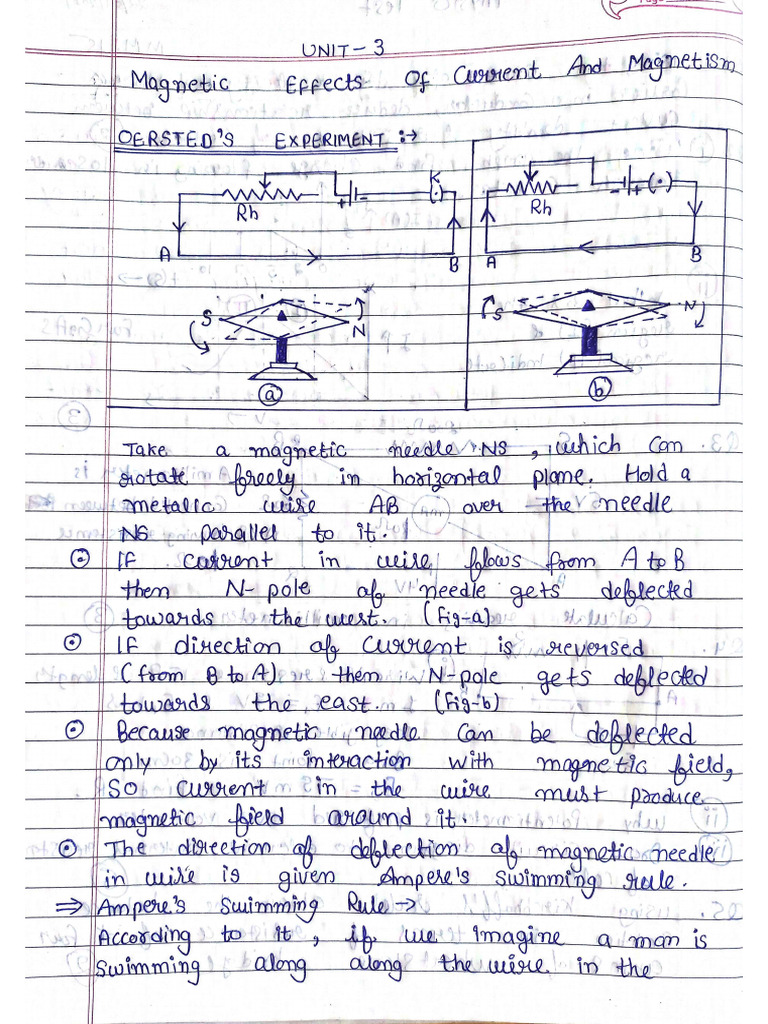 UNIT-3
Magnetic Effects Of Current And Magnetism
OERSTED'S EXPERIMENT :→
Rh
+ -
K
A
B
Rh
- +
A
B
S
N
(a)
S
N
(b)
Take a magnetic needle NS, which can
rotate freely in horizontal plane. Hold a
metallic wire AB over the needle
NS parallel to it.
If current in wire flows from A to B
then N-pole of needle gets deflected
towards the west. (Fig-a)
If direction of current is reversed
(from B to A) then N-pole gets deflected
towards the east. (Fig-b)
Because magnetic needle can be deflected
only by its interaction with magnetic field,
So current in the wire must produce
magnetic field around it.
The direction of deflection of magnetic needle
in wire is given Ampere's swimming rule.
⇒ Ampere's Swimming Rule →
According to it, if we imagine a man is
swimming along along the wire in the